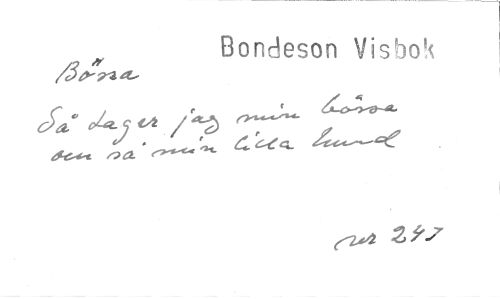 Bondeson Visbok
Bössa
Så tager jag min bössa
och så min lilla hund
nr 247